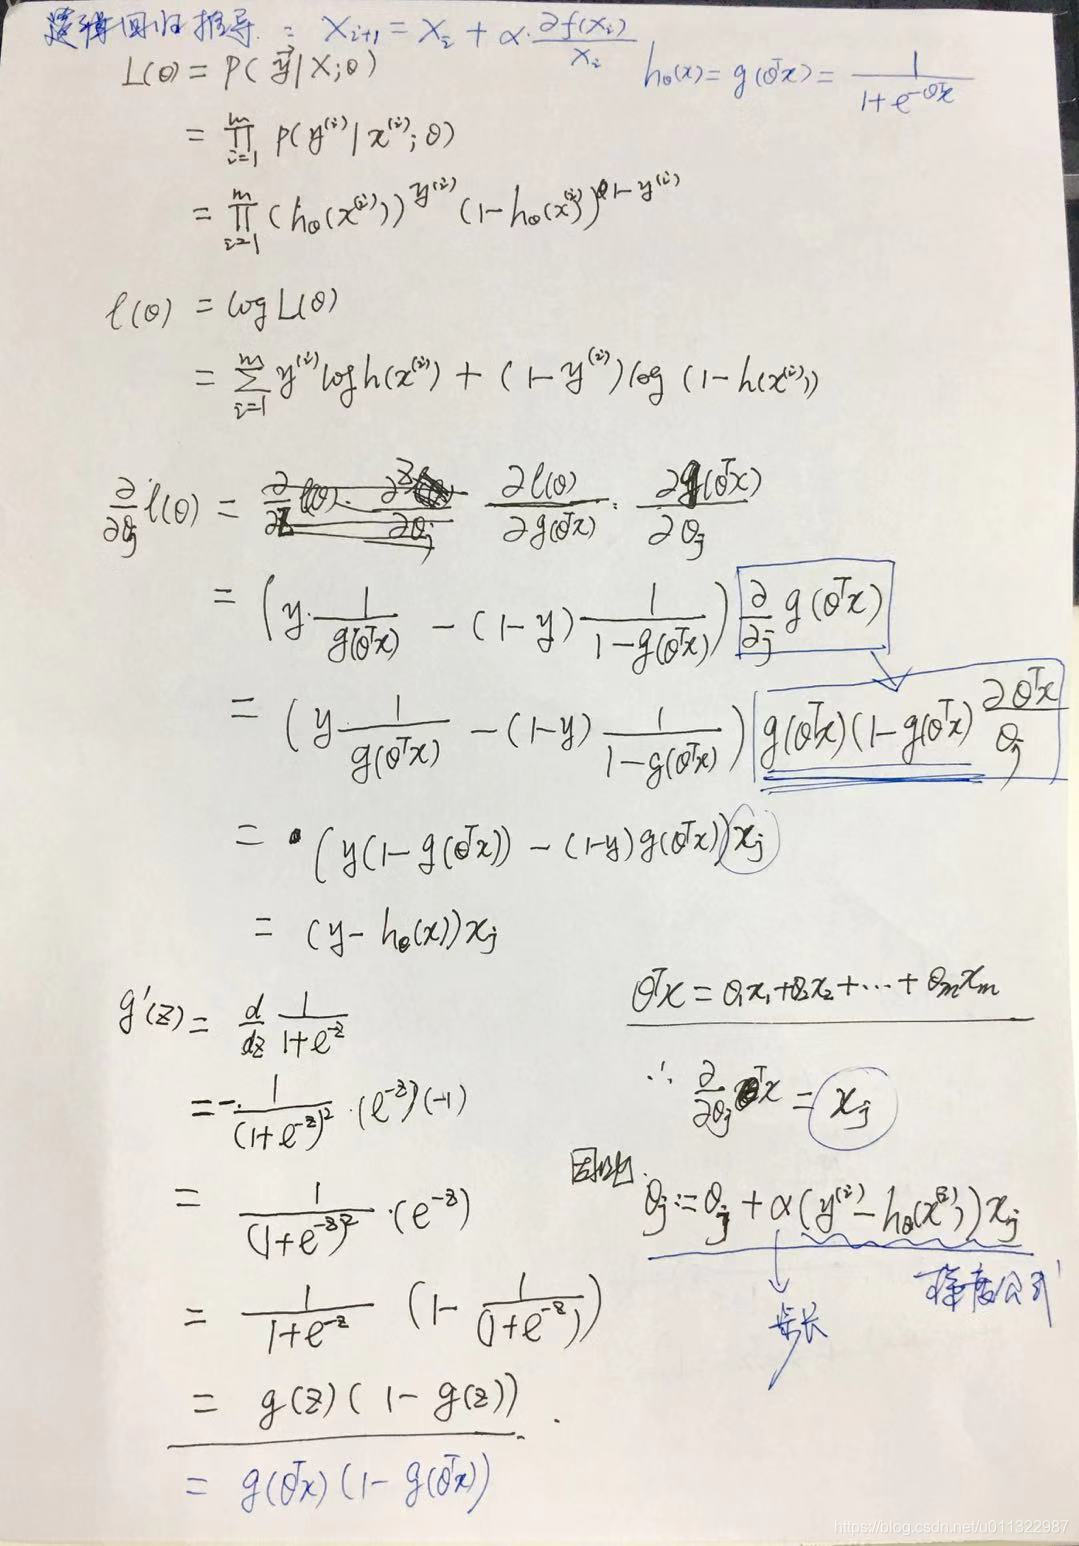 逻辑回归推导: X_{i+1} = X_i + α·∂f(X_i)/X_i
h_θ(x) = g(θ^T x) = 1/(1+e^{-θ^T x})
L(θ) = P(y⃗ | X;θ)
= ∏_{i=1}^{m} P(y^{(i)} | x^{(i)}; θ)
= ∏_{i=1}^{m} (h_θ(x^{(i)}))^{y^{(i)}} (1-h_θ(x^{(i)}))^{1-y^{(i)}}
ℓ(θ) = log L(θ)
= ∑_{i=1}^{m} y^{(i)} log h(x^{(i)}) + (1-y^{(i)}) log (1-h(x^{(i)}))
∂/∂θ_j ℓ(θ) = ∂ℓ(θ)/∂g(θ^T x) · ∂g(θ^T x)/∂θ_j
= (y·1/g(θ^T x) - (1-y) 1/(1-g(θ^T x))) ∂/∂j g(θ^T x)
= (y·1/g(θ^T x) - (1-y) 1/(1-g(θ^T x))) g(θ^T x)(1-g(θ^T x) ∂θ^T x/θ_j
= (y(1-g(θ^T x)) - (1-y)g(θ^T x)) x_j
= (y-h_θ(x))x_j
g'(z) = d/dz 1/(1+e^{-z})
= -1/(1+e^{-z})^2 ·(e^{-z})(-1)
= 1/(1+e^{-z})^2 ·(e^{-z})
= 1/(1+e^{-z}) (1- 1/(1+e^{-z}))
= g(z)(1-g(z)).
= g(θ^T x)(1-g(θ^T x))
θ^T x = θ_1x_1+θ_2x_2+⋯+θ_mx_m
∴ ∂/∂θ_j θ^T x = x_j
因此.
θ_j := θ_j + α(y^{(i)} - h_θ(x^{(i)}))x_j
梯度公式
步长
https://blog.csdn.net/u011322987